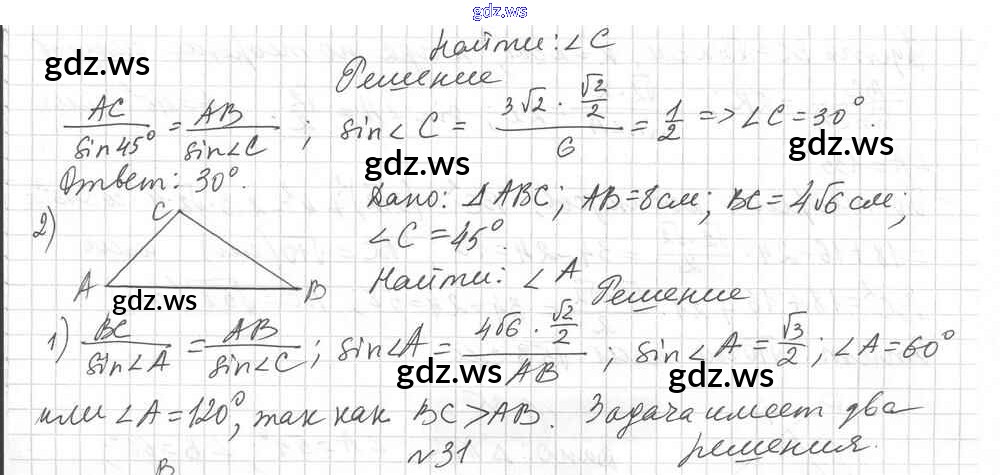 gdz.ws
Найти: ∠C
gdz.ws
Решение
AC/sin45° = AB/sin∠C ; sin∠C = (3√2 · √2/2)/6 = 1/2 => ∠C = 30°.
gdz.ws
gdz.ws
Ответ: 30°.
2)
C
A
B
Дано: ΔABC; AB=8см; BC=4√6 см;
∠C=45°.
Найти: ∠A
gdz.ws
Решение
1) BC/sin∠A = AB/sin∠C ; sin∠A = (4√6 · √2/2)/AB ; sin∠A = √3/2 ; ∠A=60°
gdz.ws
gdz.ws
или ∠A=120°, так как BC>AB. Задача имеет два
решения.
№31
B